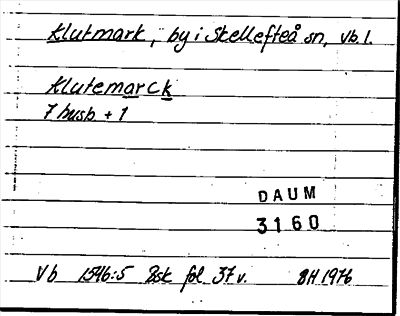 Klutmark, by i Skellefteå sn, Vb. l.
Klutemarck
7 husb + 1
DAUM
3160
Vb 1546:5 Bsk fol 37 v. BH 1976